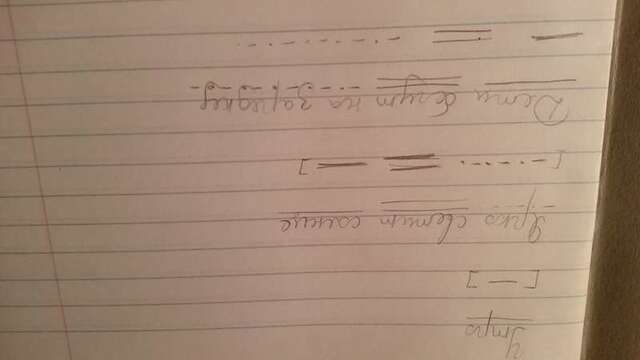 Утро
[ — ]
Ярко светит солнце
[ -.-.-. = — ]
Дети бегут на зарядку.
— = -.-.-.